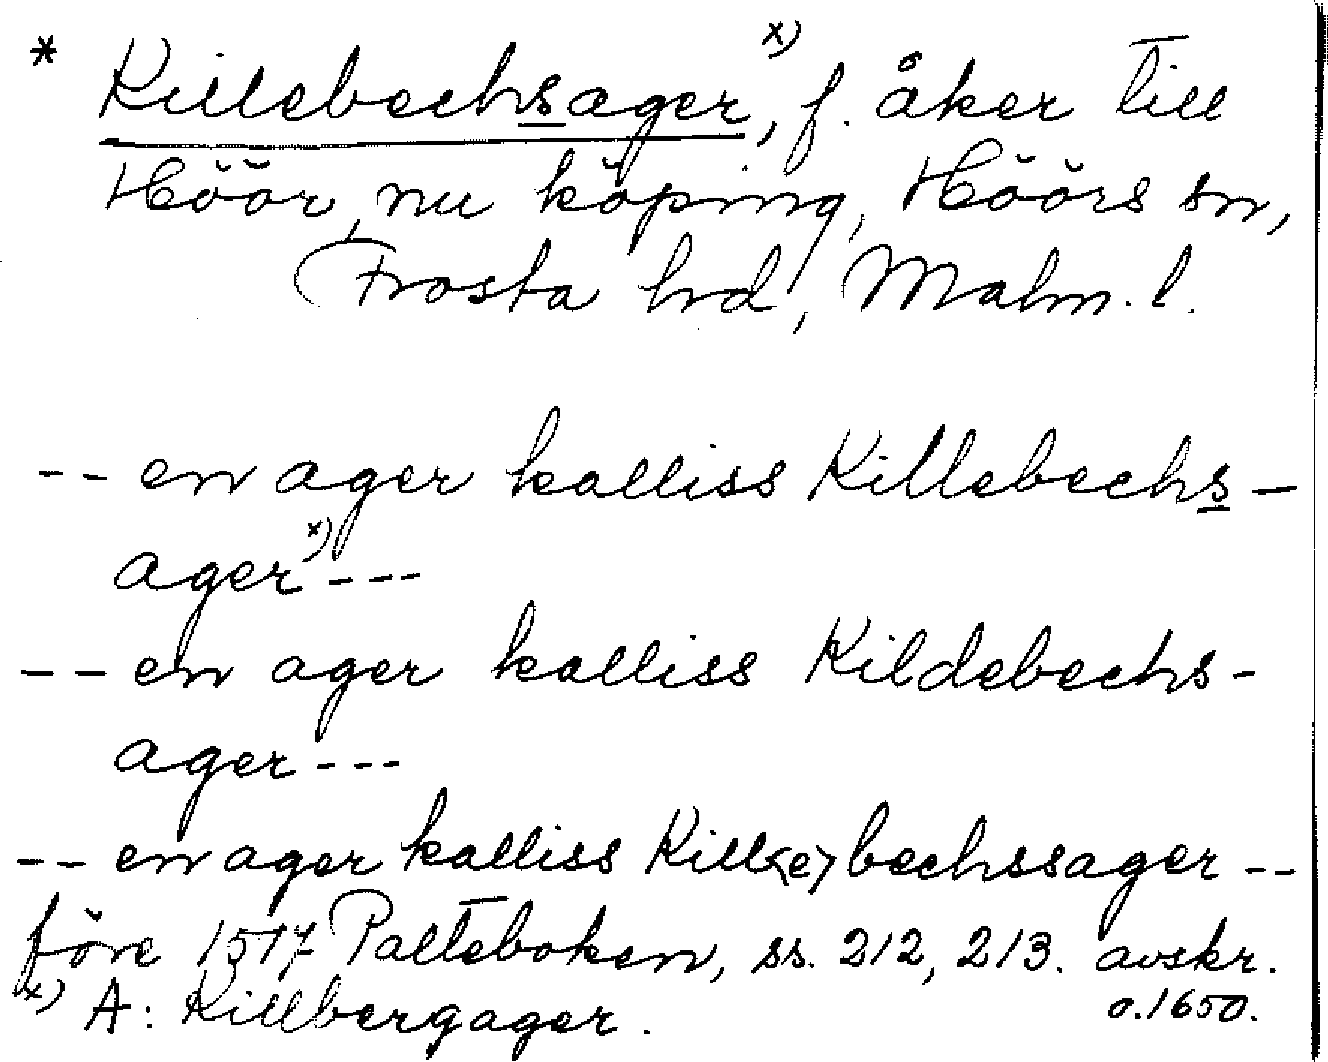 * Killebechsager, x) f. åker till
Höör, nu köping, Höörs sn,
Frosta hrd, Malm. l.
-- en ager kalliss Killebechs-
ager x) ---
-- en ager kalliss Kildebechs-
ager ---
-- en ager kalliss Kill<e>bechssager --
före 1517 Palteboken, ss. 212, 213. avskr.
o. 1650.
x) A: Killbergager.